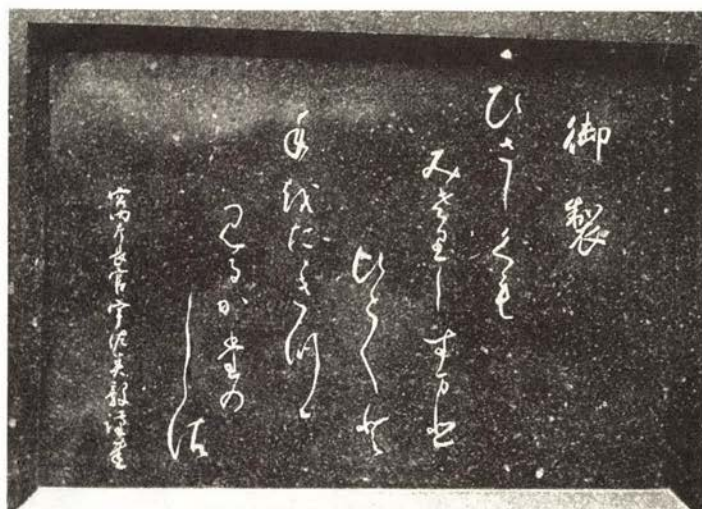 御製
ひさしくも
みさりしすまひ
ひと〱と
手をたゝきつゝ
見るかたの
しさ
宮内庁長官宇佐美毅謹書